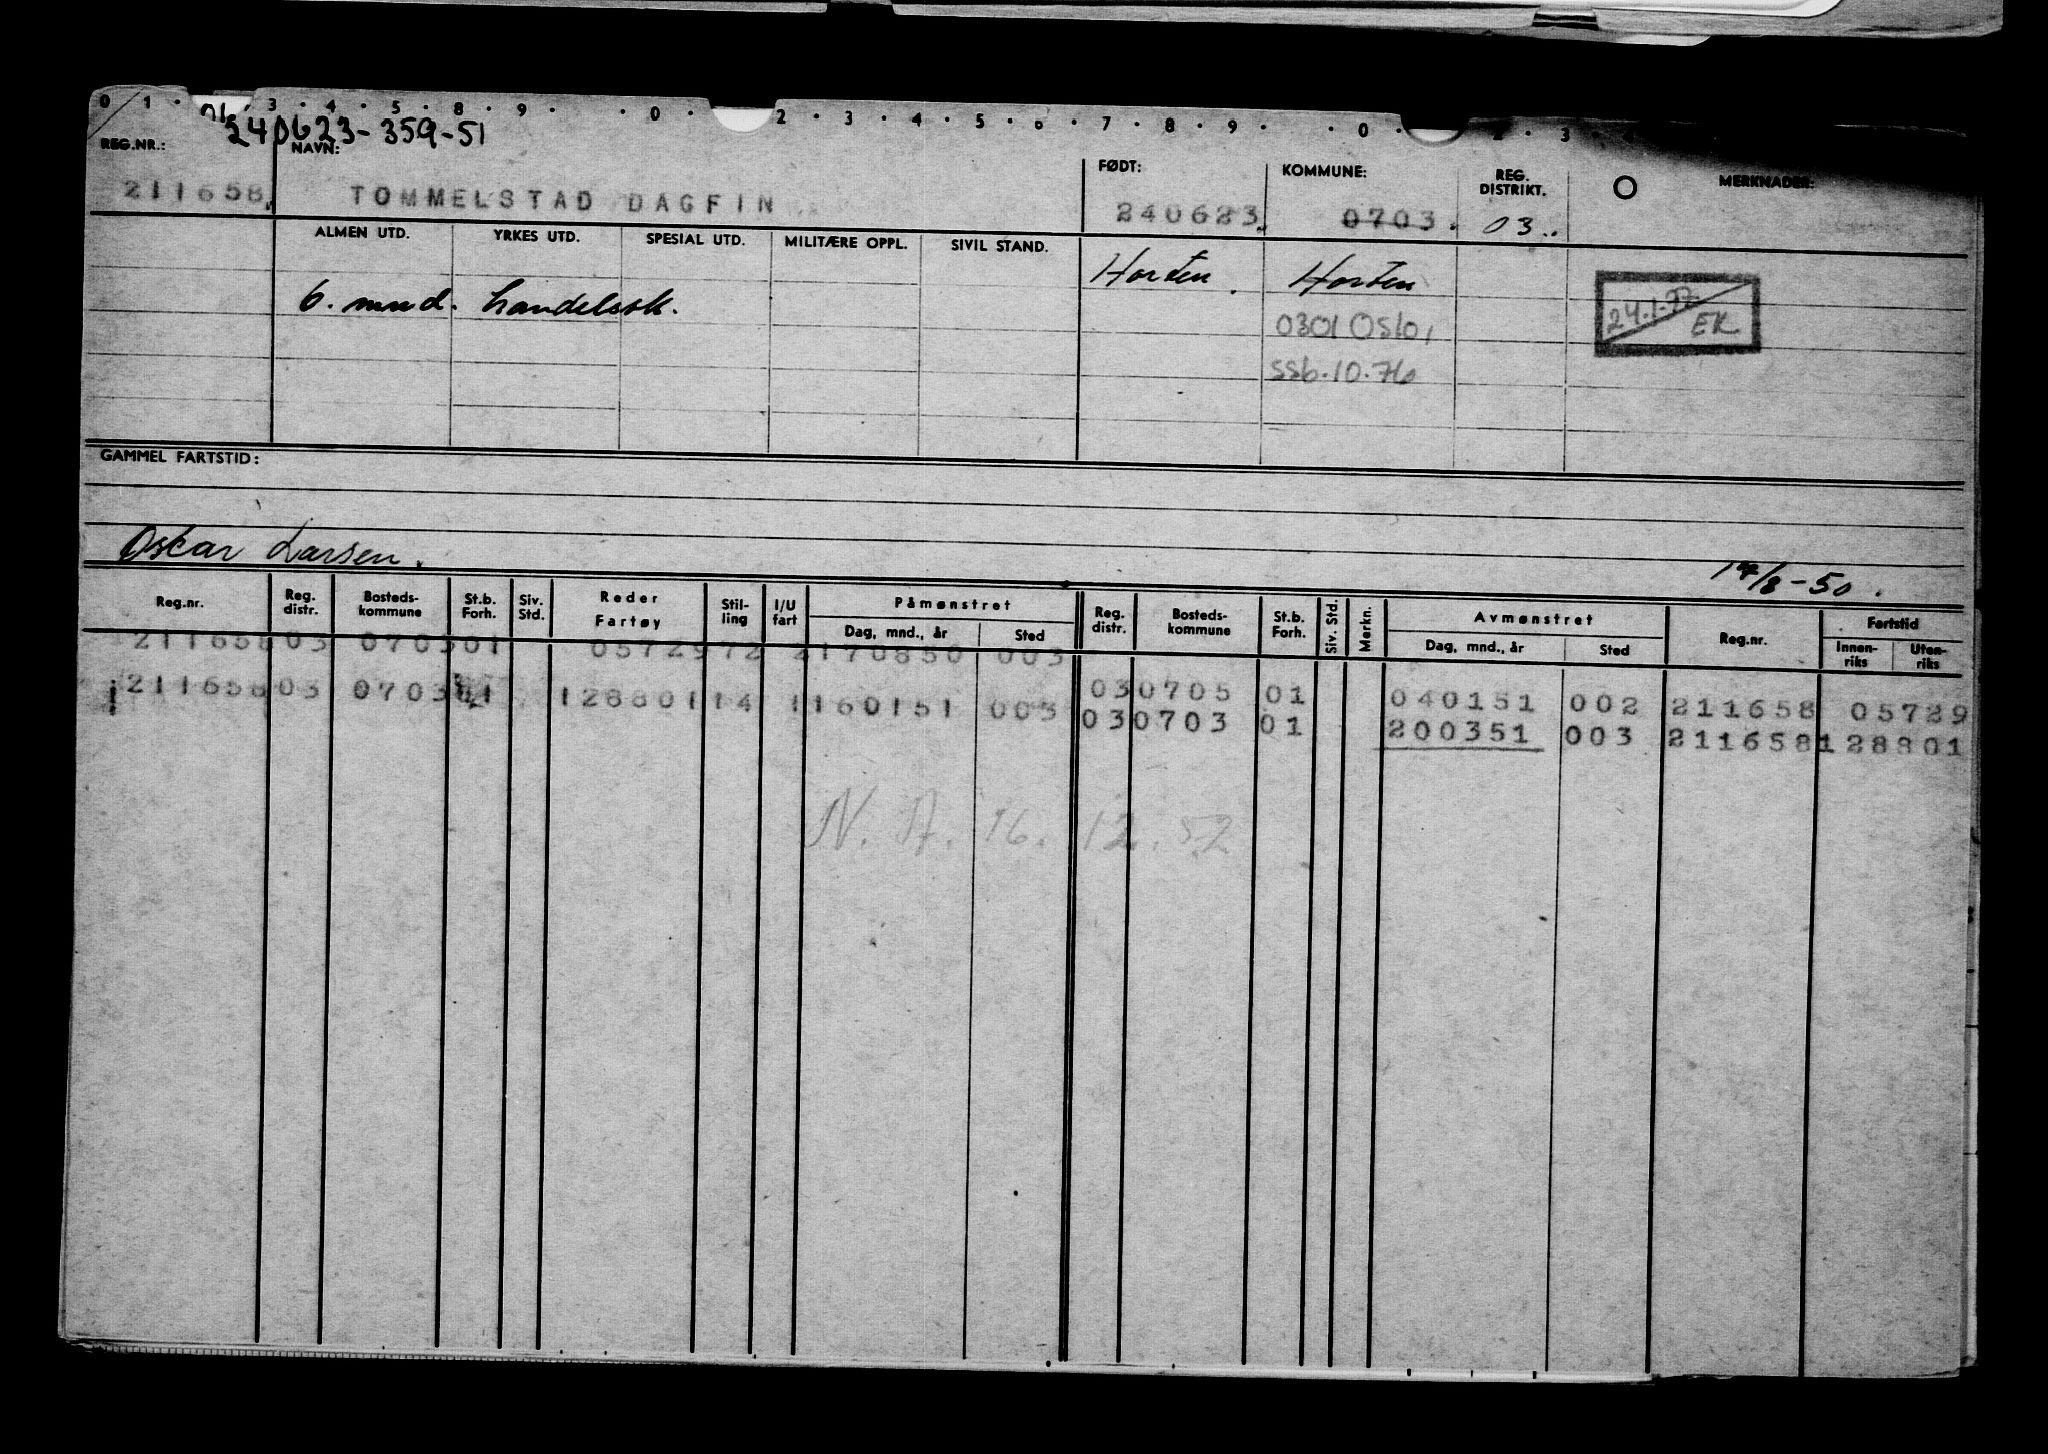 0 1 · 3 · 4 · 5 · 8 · 9 · · 0 · 2 · 3 · 4 · 5 · 6 · 7 · 8 · 9 · · 0 · 2 · 3
240623-359-51
REG.NR.: NAVN: FØDT: KOMMUNE: REG. DISTRIKT. MERKNADER:
211658. TOMMELSTAD DAGFIN 240623. 0703. 03..
ALMEN UTD. YRKES UTD. SPESIAL UTD. MILITÆRE OPPL. SIVIL STAND.
Horten. Horten
6. mnd. handelssk.
0301 Oslo,
24.1.77 EK
SSb.10.76
GAMMEL FARTSTID:
Oskar Larsen. 17/8-50.
Reg.nr. Reg. distr. Bosteds-kommune St.b. Forh. Siv. Std. Reder Fartøy Stil-ling I/U fart Påmønstret Dag, mnd., år Sted Reg. distr. Bosteds-kommune St.b. Forh. Siv. Std. Merkn. Avmønstret Dag, mnd., år Sted Reg.nr. Fartstid Innen-riks Uten-riks
211658 03 0703 01 05729 72 2 170850 003
211658 03 0703 01 128801 14 1 160151 003 03 0705 01 040151 002 211658 05729
03 0703 01 200351 003 211658 128801
N. A. 16. 12. 52